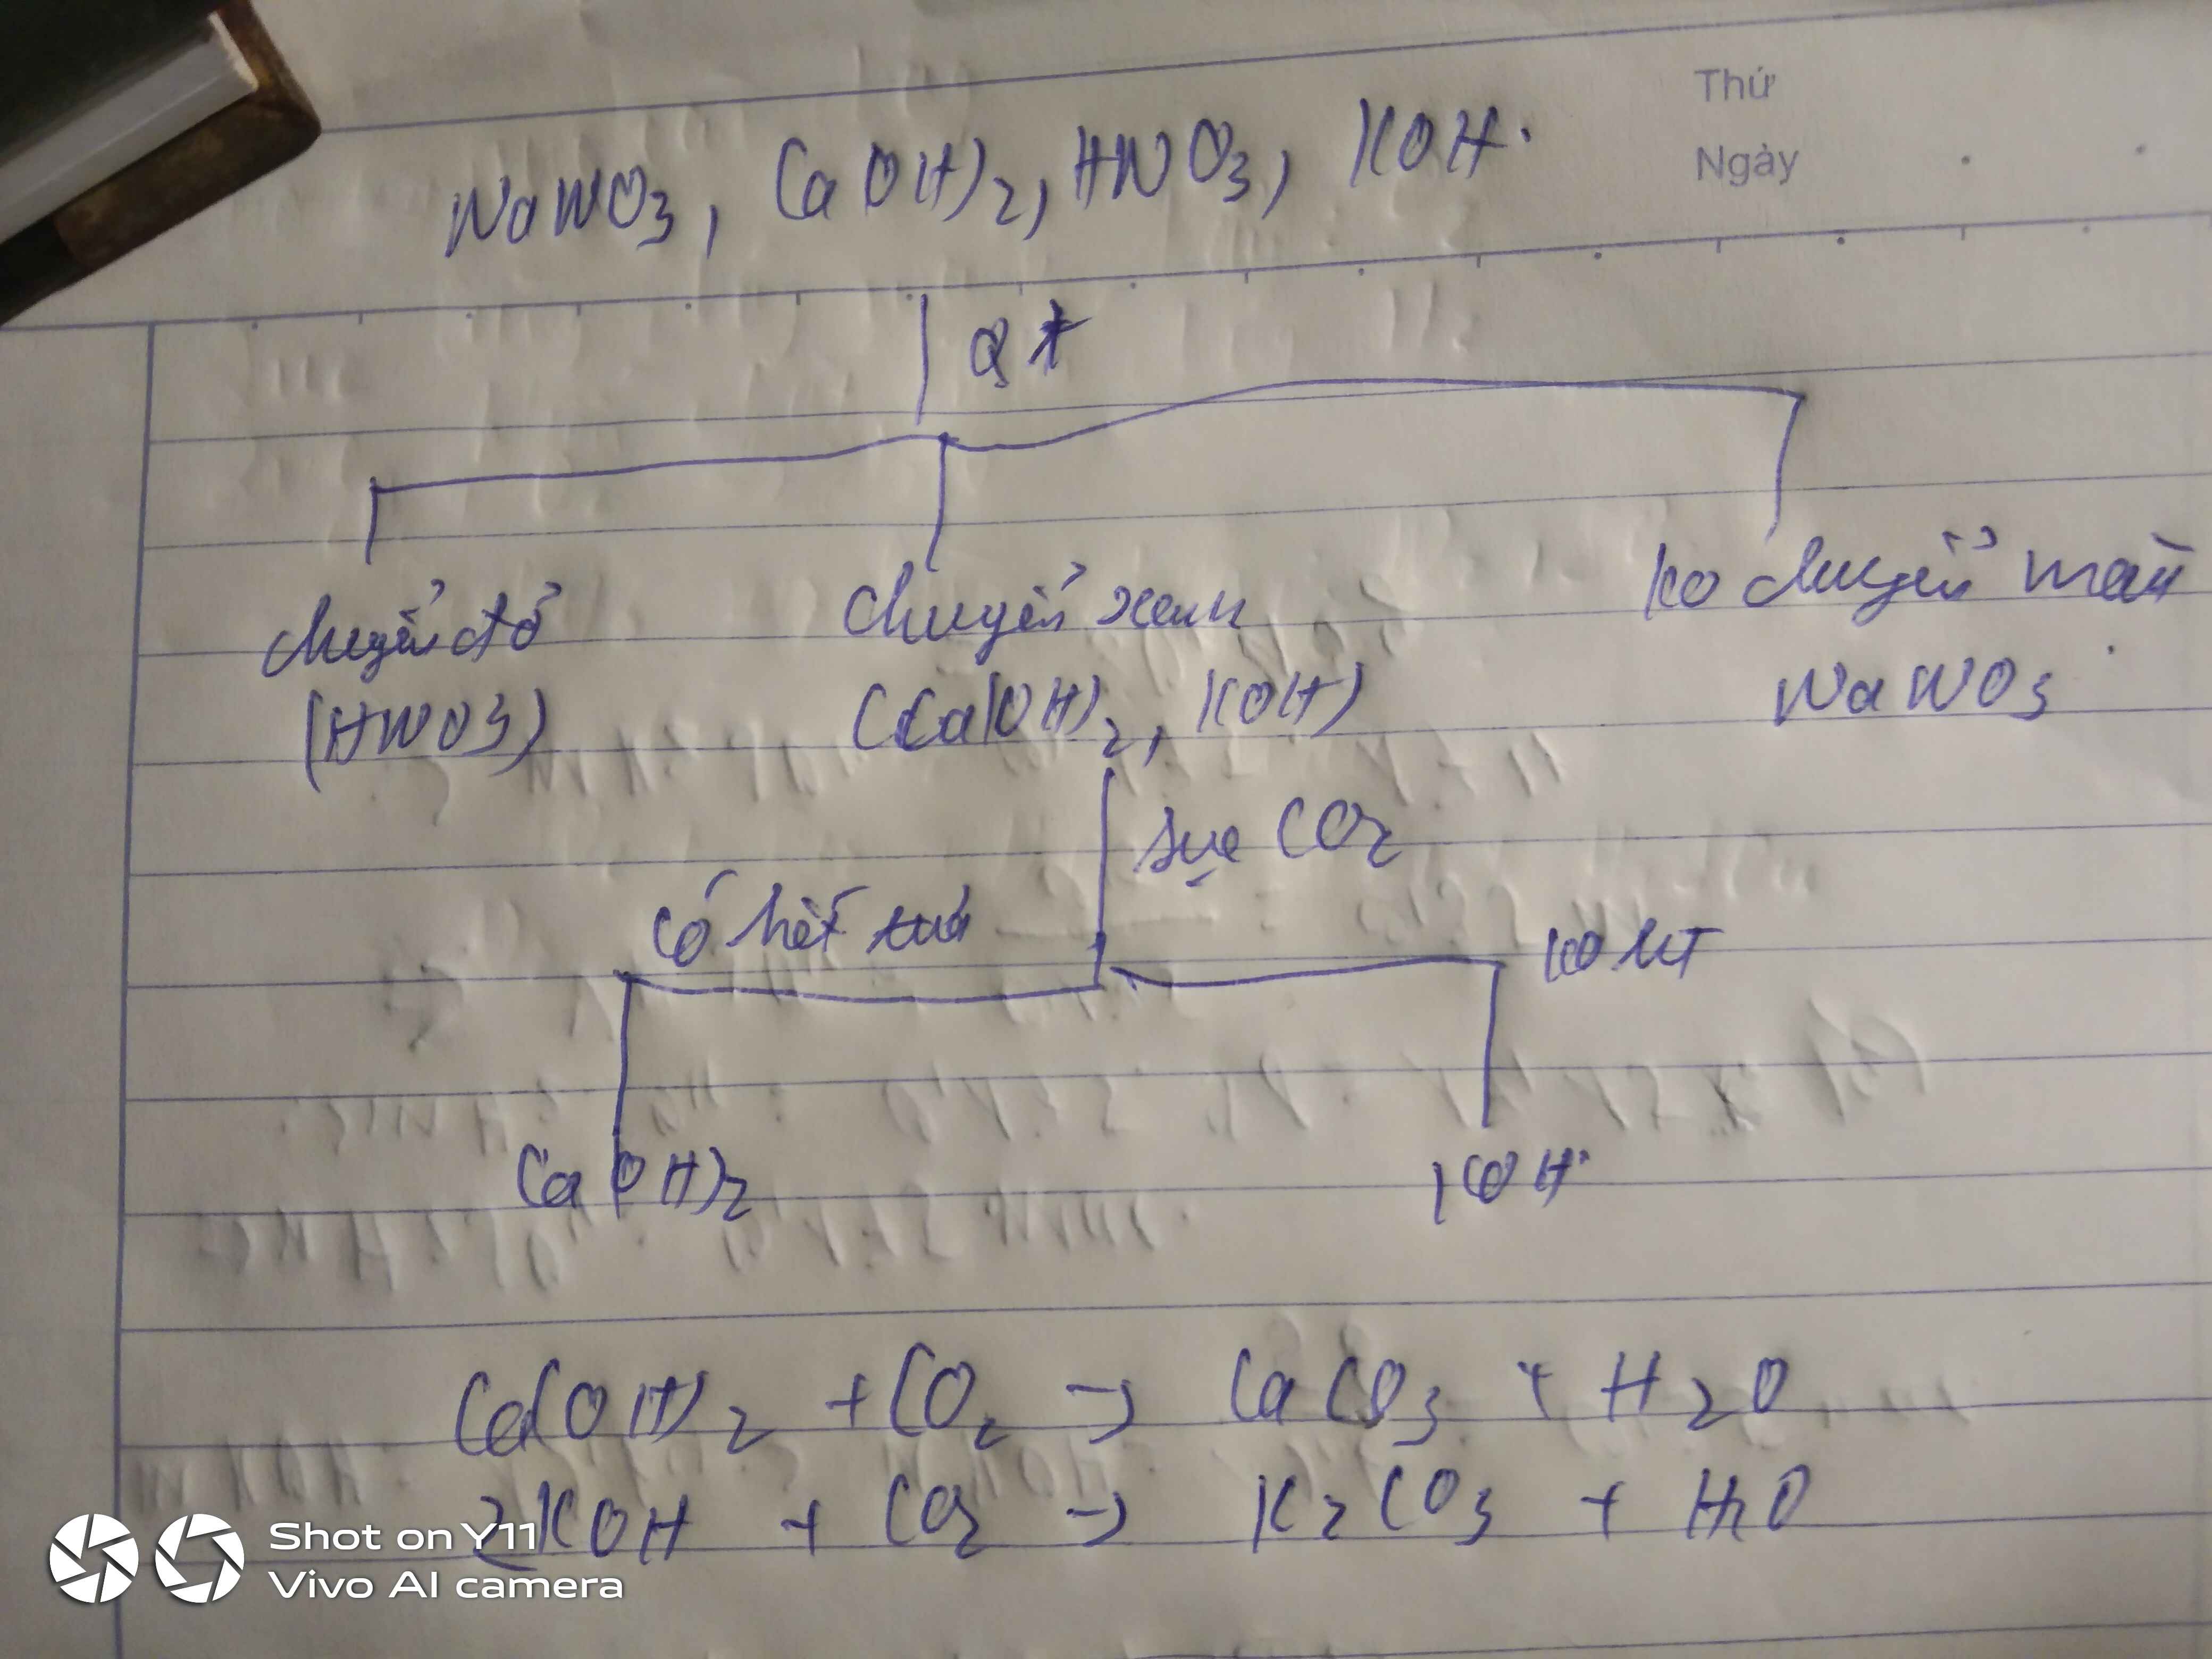 Thứ
Ngày
NaNO3, Ca(OH)2, HNO3, KOH.
Qt
chuyển đỏ
chuyển xanh
ko chuyển màu
(HNO3)
(Ca(OH)2, KOH)
NaNO3
sục CO2
có kết tủa
ko KT
Ca(OH)2
KOH
Ca(OH)2 + CO2 → CaCO3 + H2O
2KOH + CO2 → K2CO3 + H2O
Shot on Y11
Vivo AI camera